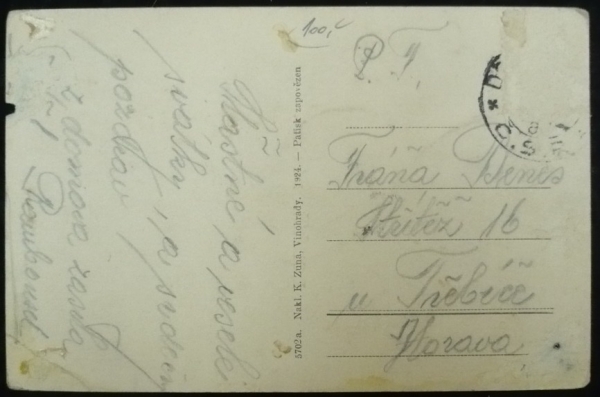 100,
P. T.
Fráňa Beneš
Střítěž 16
u Třebíče
Morava
5702a. Nakl. K. Zuna, Vinohrady. 1924. — Patisk zapovězen
Šťastné a veselé
svátky, a srdečný
pozdrav
z domova zasílá